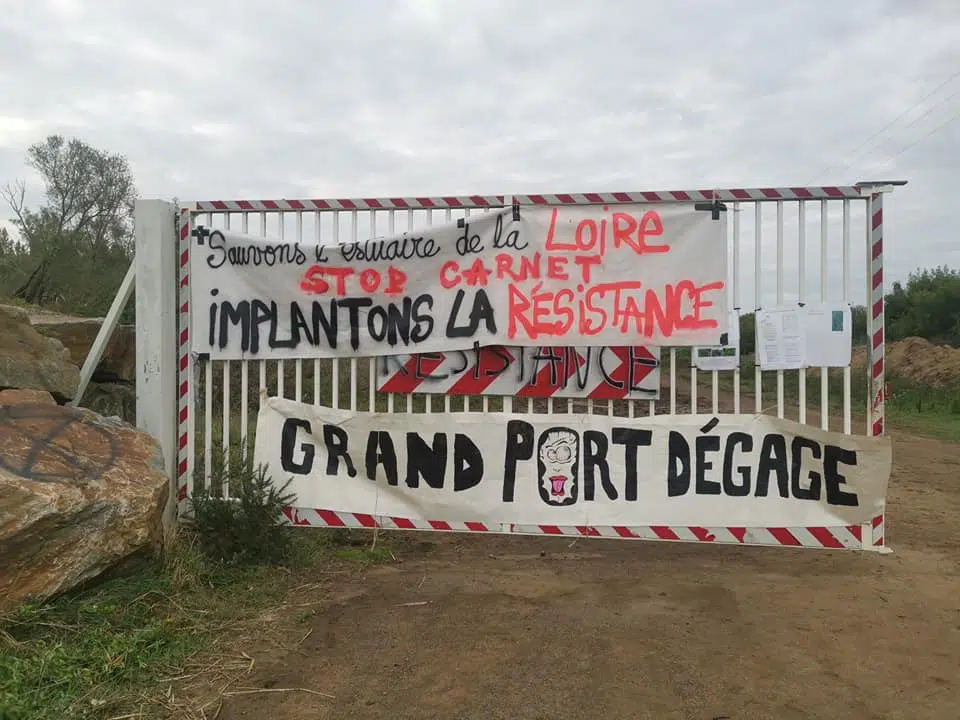 Sauvons l'estuaire de la LOIRE
STOP CARNET
iMPLANTONS LA RÉSISTANCE
RESISTANCE
GRAND PORT DÉGAGE